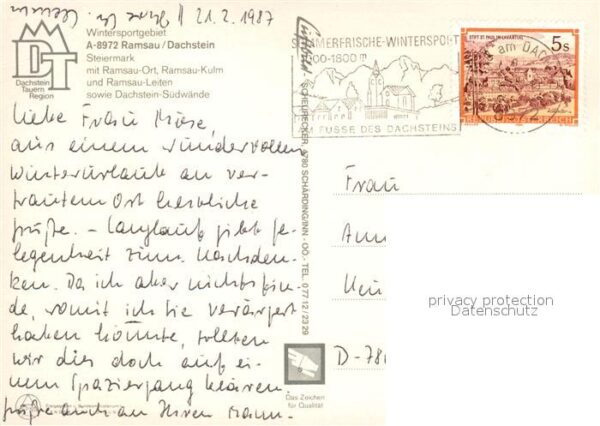 21.2.1987
Wintersportgebiet
A-8972 Ramsau/Dachstein
Steiermark
mit Ramsau-Ort, Ramsau-Kulm
und Ramsau-Leiten
sowie Dachstein-Südwände
DT
Dachstein
Tauern
Region
Liebe Frau Miese,
aus einem wundervollen
Winterurlaub an ver-
trautem Ort herzliche
Grüße. – Langlauf gibt Ge-
legenheit zum Nachden-
ken. Da ich aber nichts fin-
de, womit ich Sie verärgert
haben könnte, sollten
wir dies doch auf ei-
nem Spaziergang klären.
Grüße auch an Ihren Mann.
SCHEURECKER, 4780 SCHÄRDING/INN - OÖ. - TEL. 07712/2329
SOMMERFRISCHE-WINTERSPORT
1000-1800 m
AM FUSSE DES DACHSTEINS
STIFT ST. PAUL IM LAVANTTAL
5s
REPUBLIK ÖSTERREICH
am DACH
Frau
D-78
privacy protection
Datenschutz
Das Zeichen
für Qualität